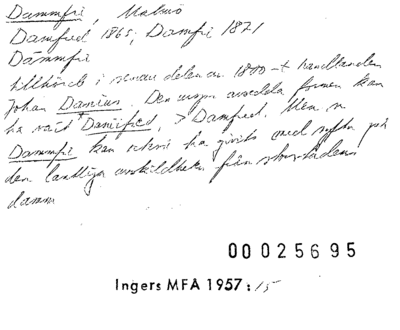 Dammfri, Malmö
Damfred 1865, Damfri 1871
Dammfri
tillhörde i senare delen av 1800-t handlanden
Johan Damius. Den urspr. avsedda formen kan
ha varit Damiifred, > Damfred. Men n
Dammfri kan också ha givits med syfte på
den lantliga avskildheten från storstadens
damm
00025695
Ingers MFA 1957:15